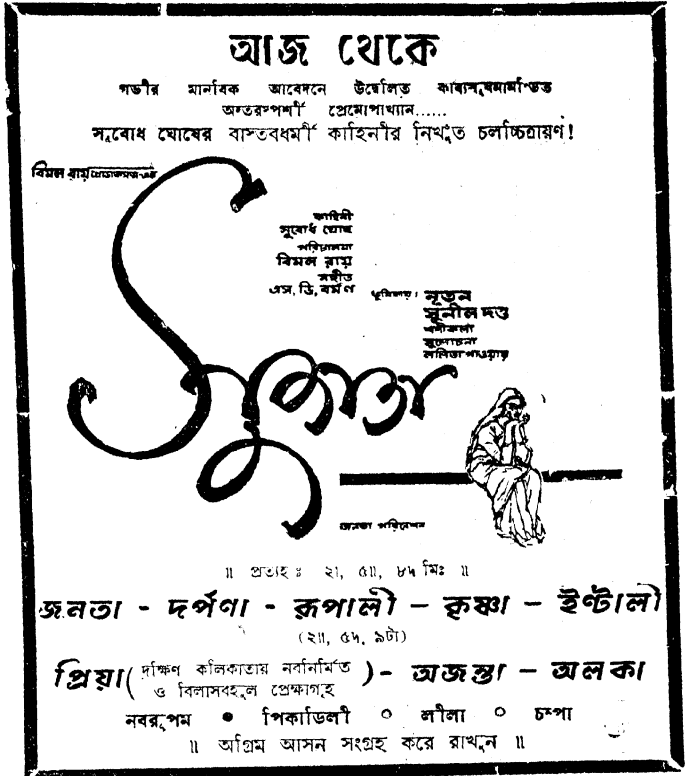 আজ থেকে
গভীর মানবিক আবেদনে উদ্বেলিত কাব্যসুষমামণ্ডিত
অন্তরস্পর্শী প্রেমোপাখ্যান......
সুবোধ ঘোষের বাস্তবধর্মী কাহিনীর নিখুঁত চলচ্চিত্রায়ণ!
বিমল রায় প্রোডাকসন্স-এর
কাহিনী
সুবোধ ঘোষ
পরিচালনা
বিমল রায়
সঙ্গীত
এস, ডি, বর্মণ
ভূমিকায়।
নূতন
সুনীল দত্ত
শশীকলা
সুলোচনা
ললিতা পাওয়ার
সুজাতা
জনতা পরিবেশন
॥ প্রত্যহ : ২৷, ৫৷৷, ৮৸ মিঃ ॥
জনতা - দর্পণা - রূপালী - কৃষ্ণা - ইণ্টালী
(২৷৷, ৫৸, ৯টা)
প্রিয়া (দক্ষিণ কলিকাতায় নবনির্মিত ও বিলাসবহুল প্রেক্ষাগৃহ) - অজন্তা - অলকা
নবরূপম ● পিকাডিলী ○ লীলা ○ চম্পা
॥ অগ্রিম আসন সংগ্রহ করে রাখুন ॥